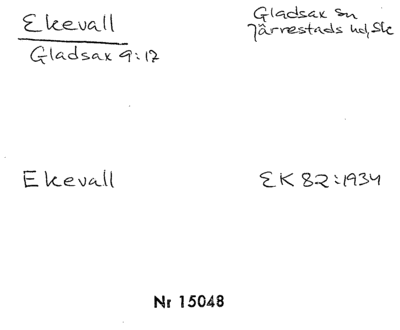 Ekevall
Gladsax 9:17
Gladsax sn
Järrestads hd, Sk
Ekevall
EK 82:1934
Nr 15048